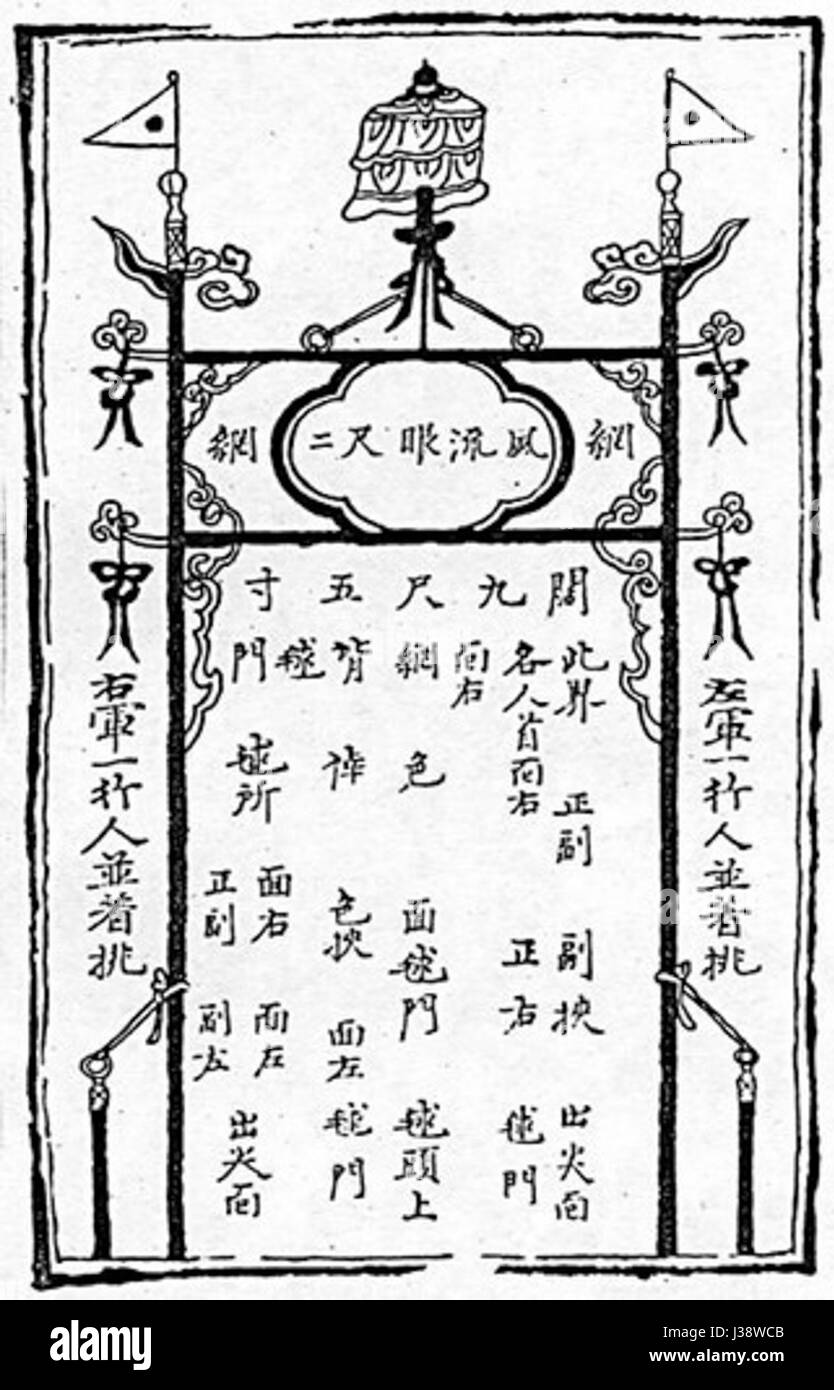 網 風流眼尺二 網
闊九尺五寸
左軍一行人並著挑
此界 正副 副挾 出尖面
各人首面右 正右 毬門
面右
網色 面毬門 毬頭上
背 色挾 面左毬門
毬
門 毬所 正副 副左 出尖面
面右 面左
右軍一行人並著挑
alamy stock photo
J38WCB
www.alamy.com